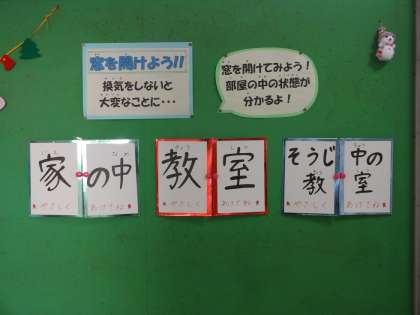 窓を開けよう!!
換気をしないと
大変なことに・・・
窓を開けてみよう!
部屋の中の状態が
分かるよ!
家の中
やさしく
あけてね
教室
やさしく
あけてね
そうじ中の
教室
やさしく
あけてね